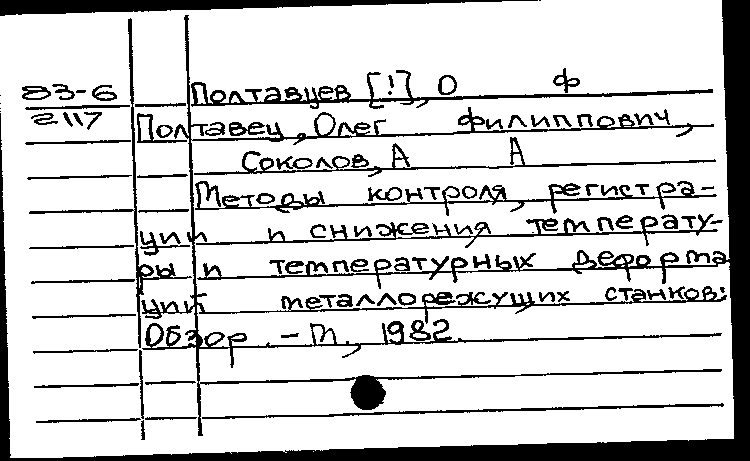 83-6 Полтавцев [!], О Ф
2117 Полтавец, Олег Филиппович,
Соколов, А А
Методы контроля, регистра-
ции и снижения температу-
ры и температурных деформа
ций металлорежущих станков:
Обзор. - М., 1982.